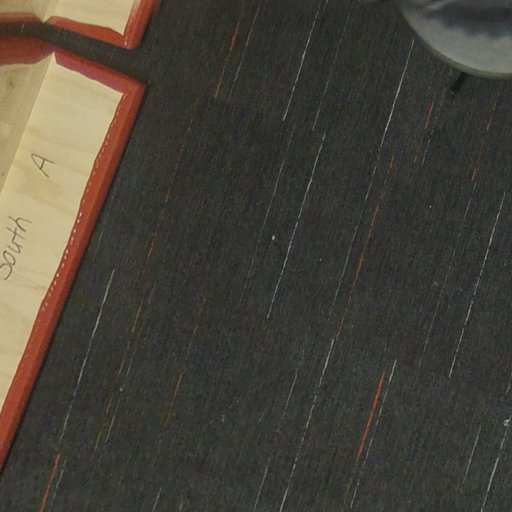 South A